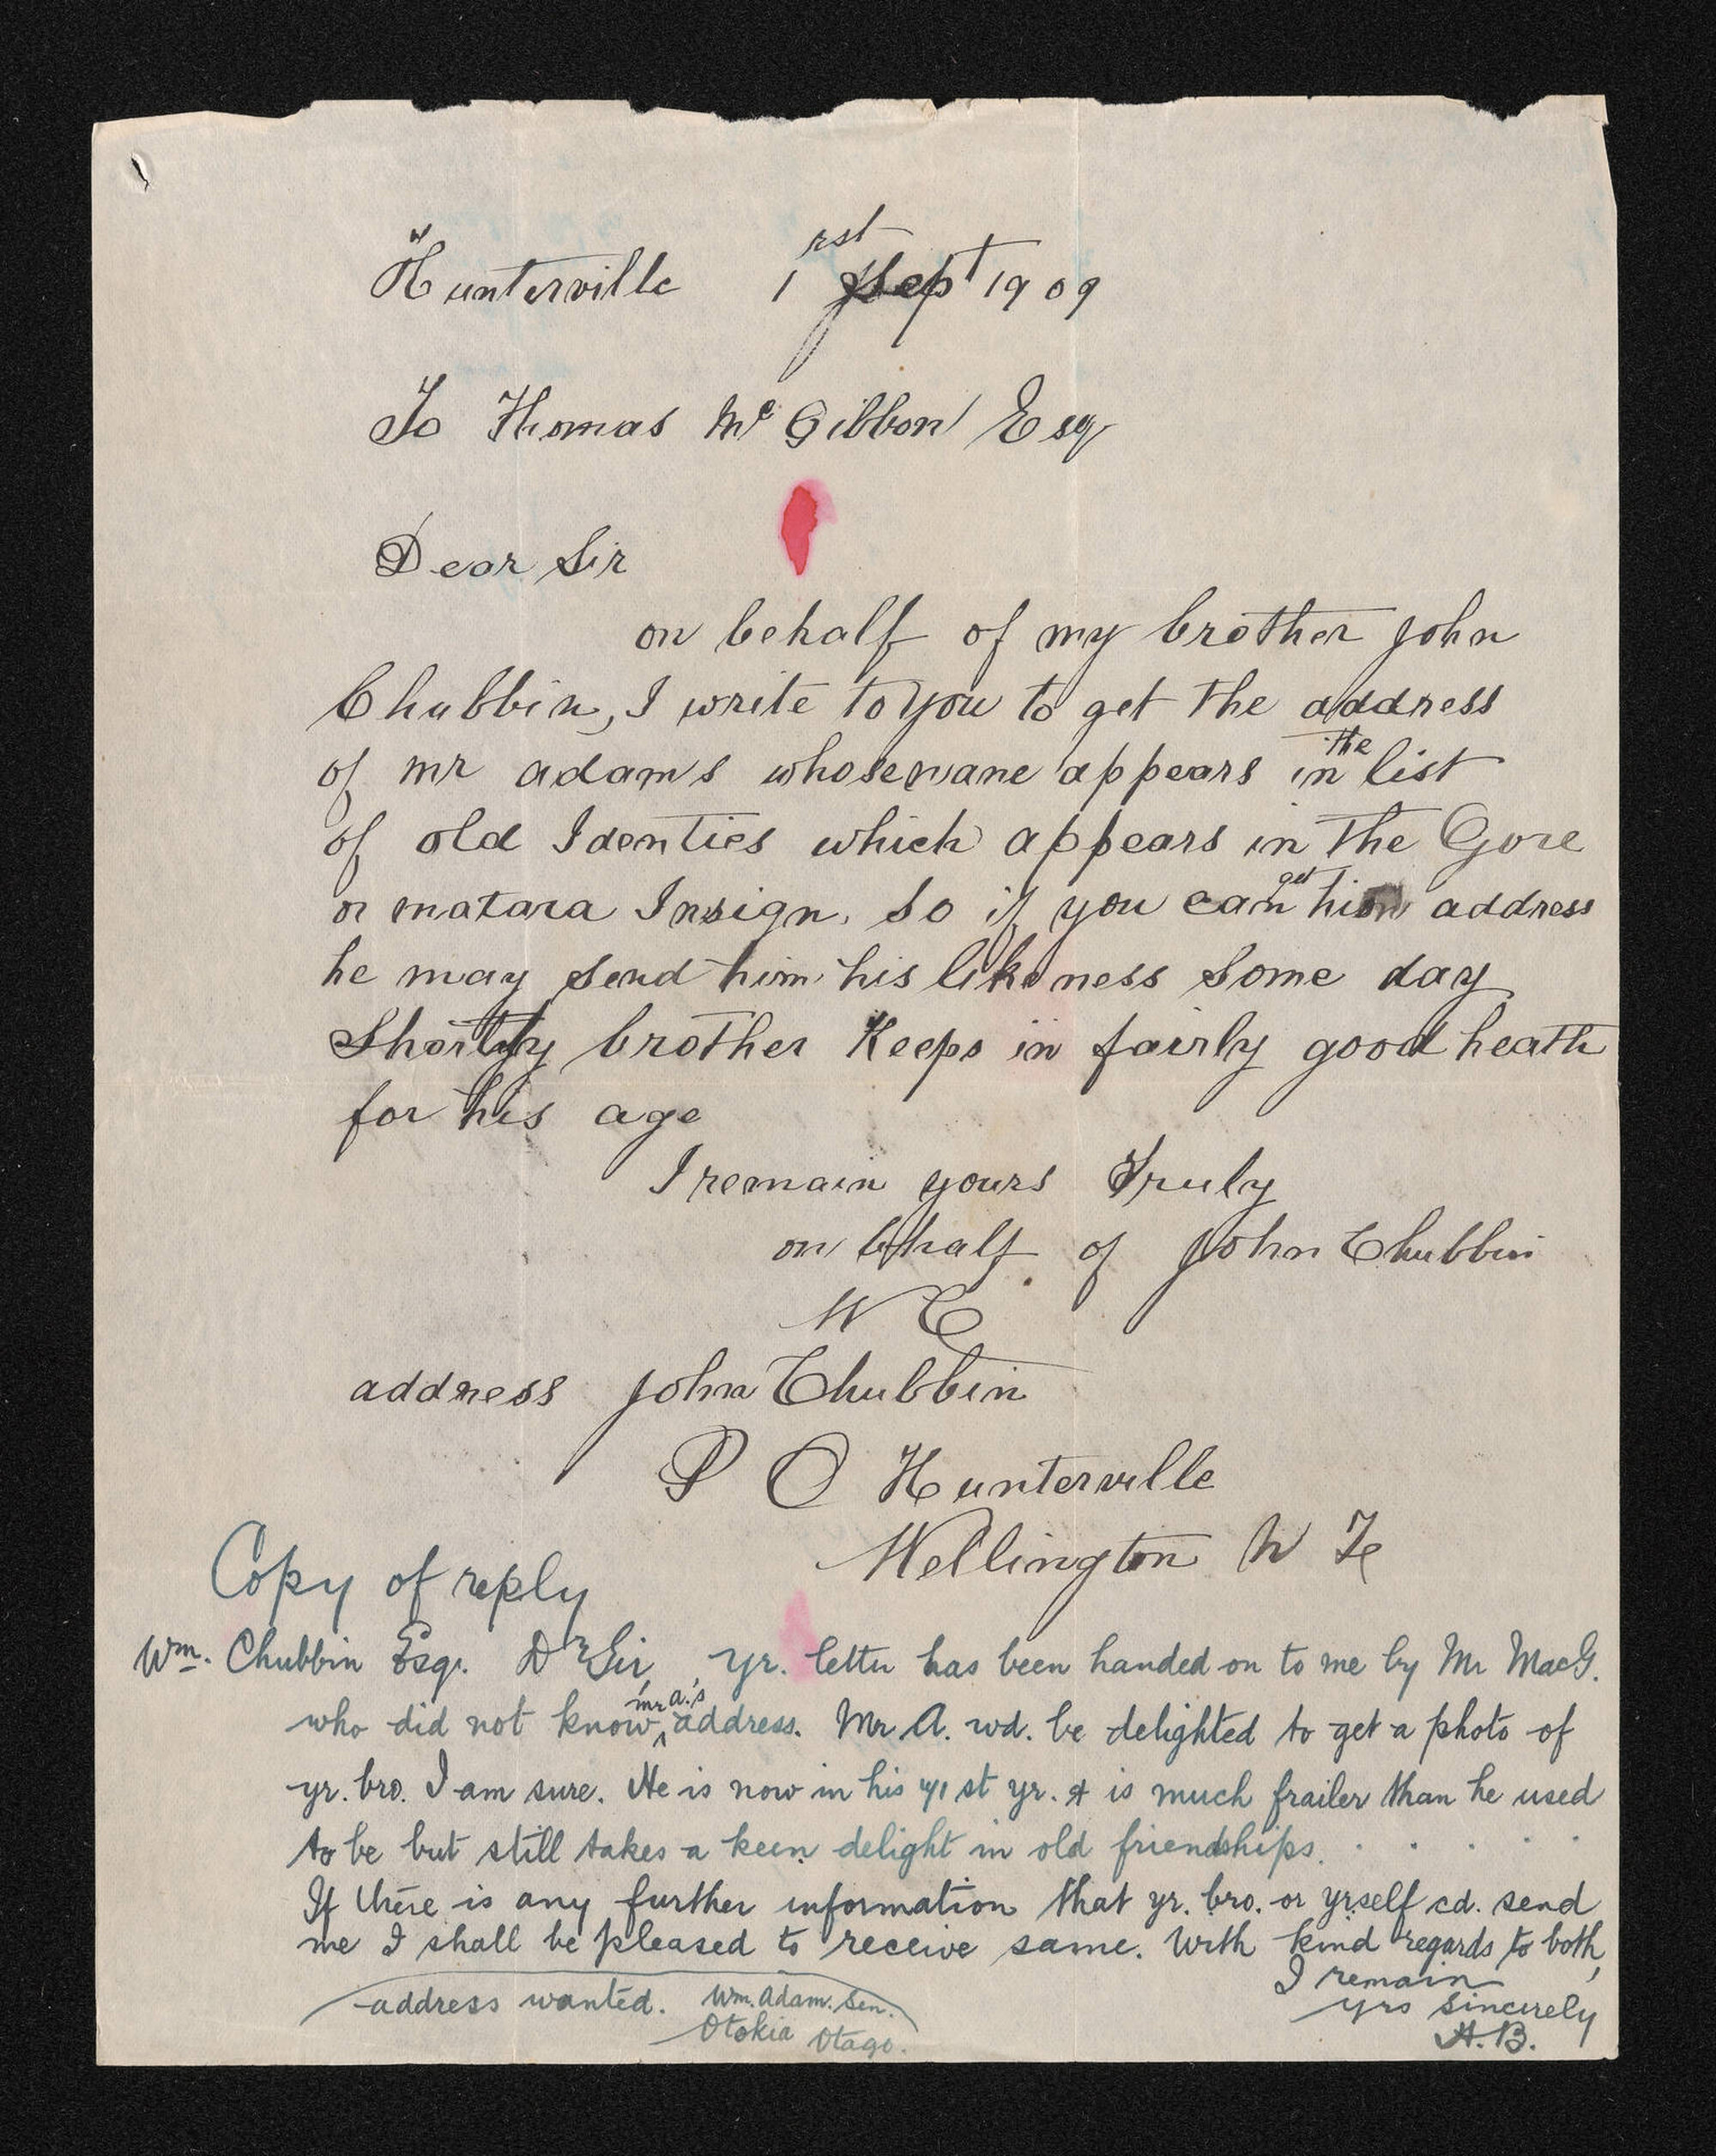 Hunterville 1rst Sept 1909
To Thomas Mc Gibbon Esq
Dear Sir
on behalf of my brother John
Chubbin, I write to you to get the address
of mr adams whose name appears in the list
of old Identies which appears in the Gore
or matara Insign. So if you can get his address
he may send him his likeness some day
Shortly brother Keeps in fairly good heath
for his age
I remain yours Truly
on behalf of John Chubbin
W C
address John Chubbin
P O Hunterville
Wellington N Ze
Copy of reply
Wm. Chubbin Esq. Dr Sir, Yr. letter has been handed on to me by Mr MacG.
who did not know mr a.'s address. Mr A. wd. be delighted to get a photo of
yr. bro. I am sure. He is now in his st yr. & is much frailer than he used
to be but still takes a keen delight in old friendships. . . . . .
If there is any further information that yr. bro. or yrself cd. send
me I shall be pleased to receive same. With kind regards to both,
I remain
yrs sincerely
A.B.
address wanted. Wm. Adam. Sen.
Otokia Otago.